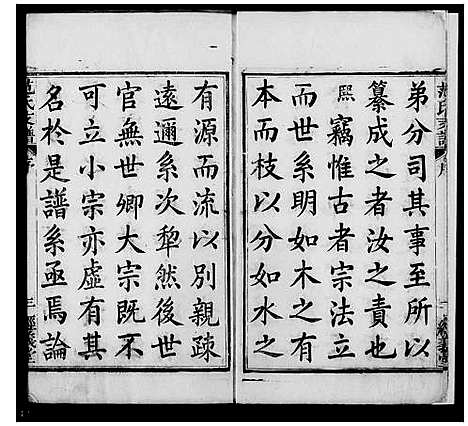 弟分司其事至所以
纂成之者汝之責也
熙竊惟古者宗法立
而世系明如木之有
本而枝以分如水之
有源而流以別親疎
遠邇系次犂然後世
官無世卿大宗既不
可立小宗亦虛有其
名於是譜系亟焉論
范氏支譜
序
三
經義堂